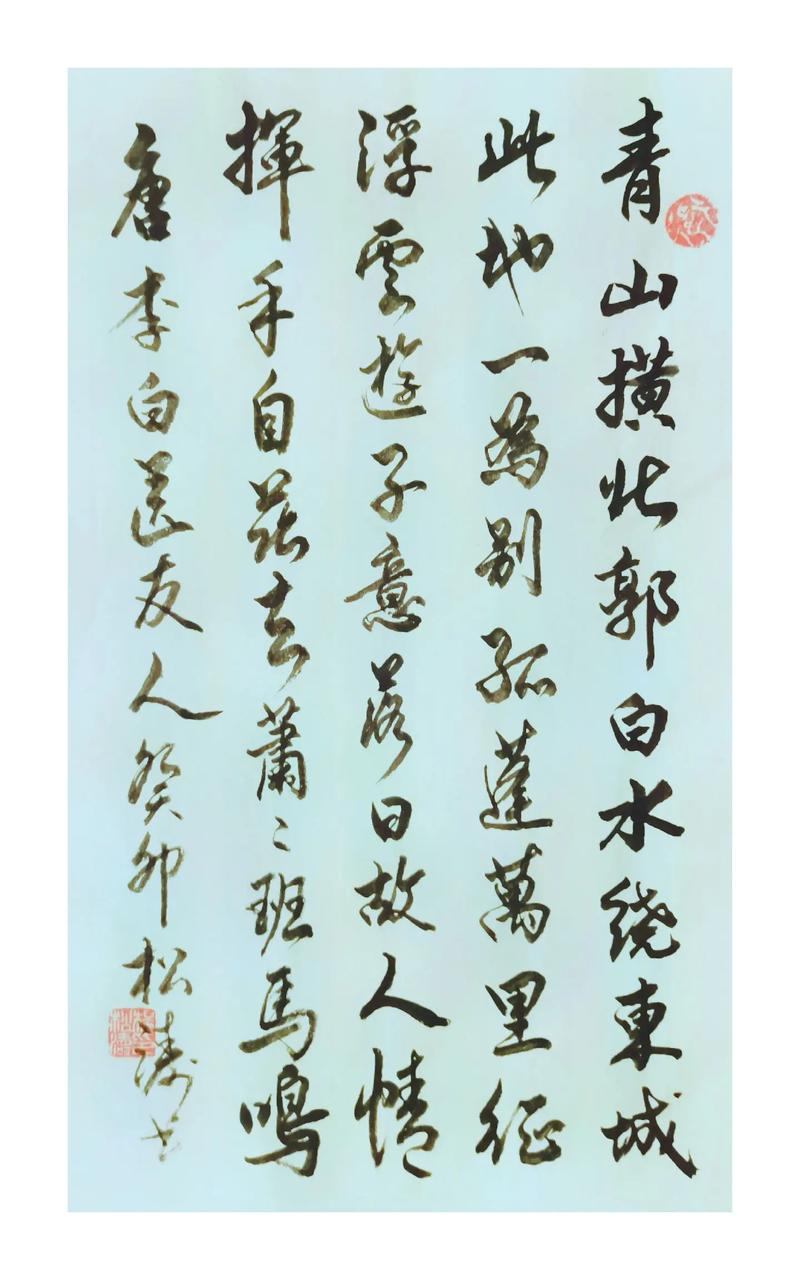 青山横北郭白水绕東城
此地一為别孤蓬萬里征
浮雲遊子意落日故人情
揮手自茲去蕭〻班馬鳴
唐李白送友人癸卯松涛书